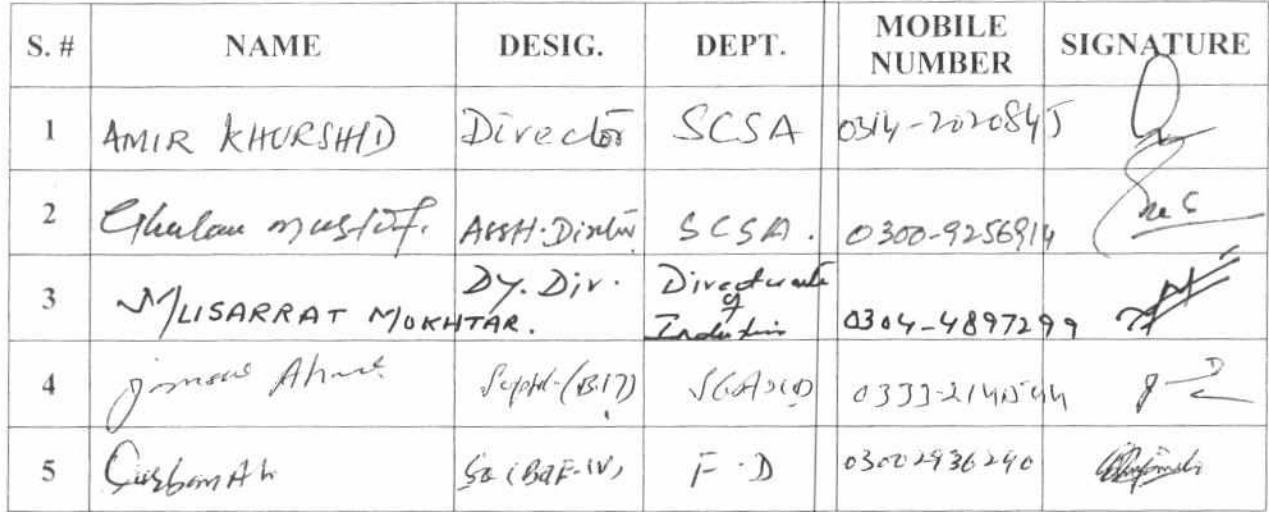 S. # NAME DESIG. DEPT. MOBILE NUMBER SIGNATURE
1 AMIR KHURSHID Director SCSA 0314-2020845
2 Ghulam Mustafa. Asstt. Director SCSA. 0300-9256914
3 MUSARRAT MOKHTAR. Dy. Dir. Directorate of Industries 0304-4897299
4 Ahmed
5 Qurban Ali SO (B&E-IV) F.D 03002936290